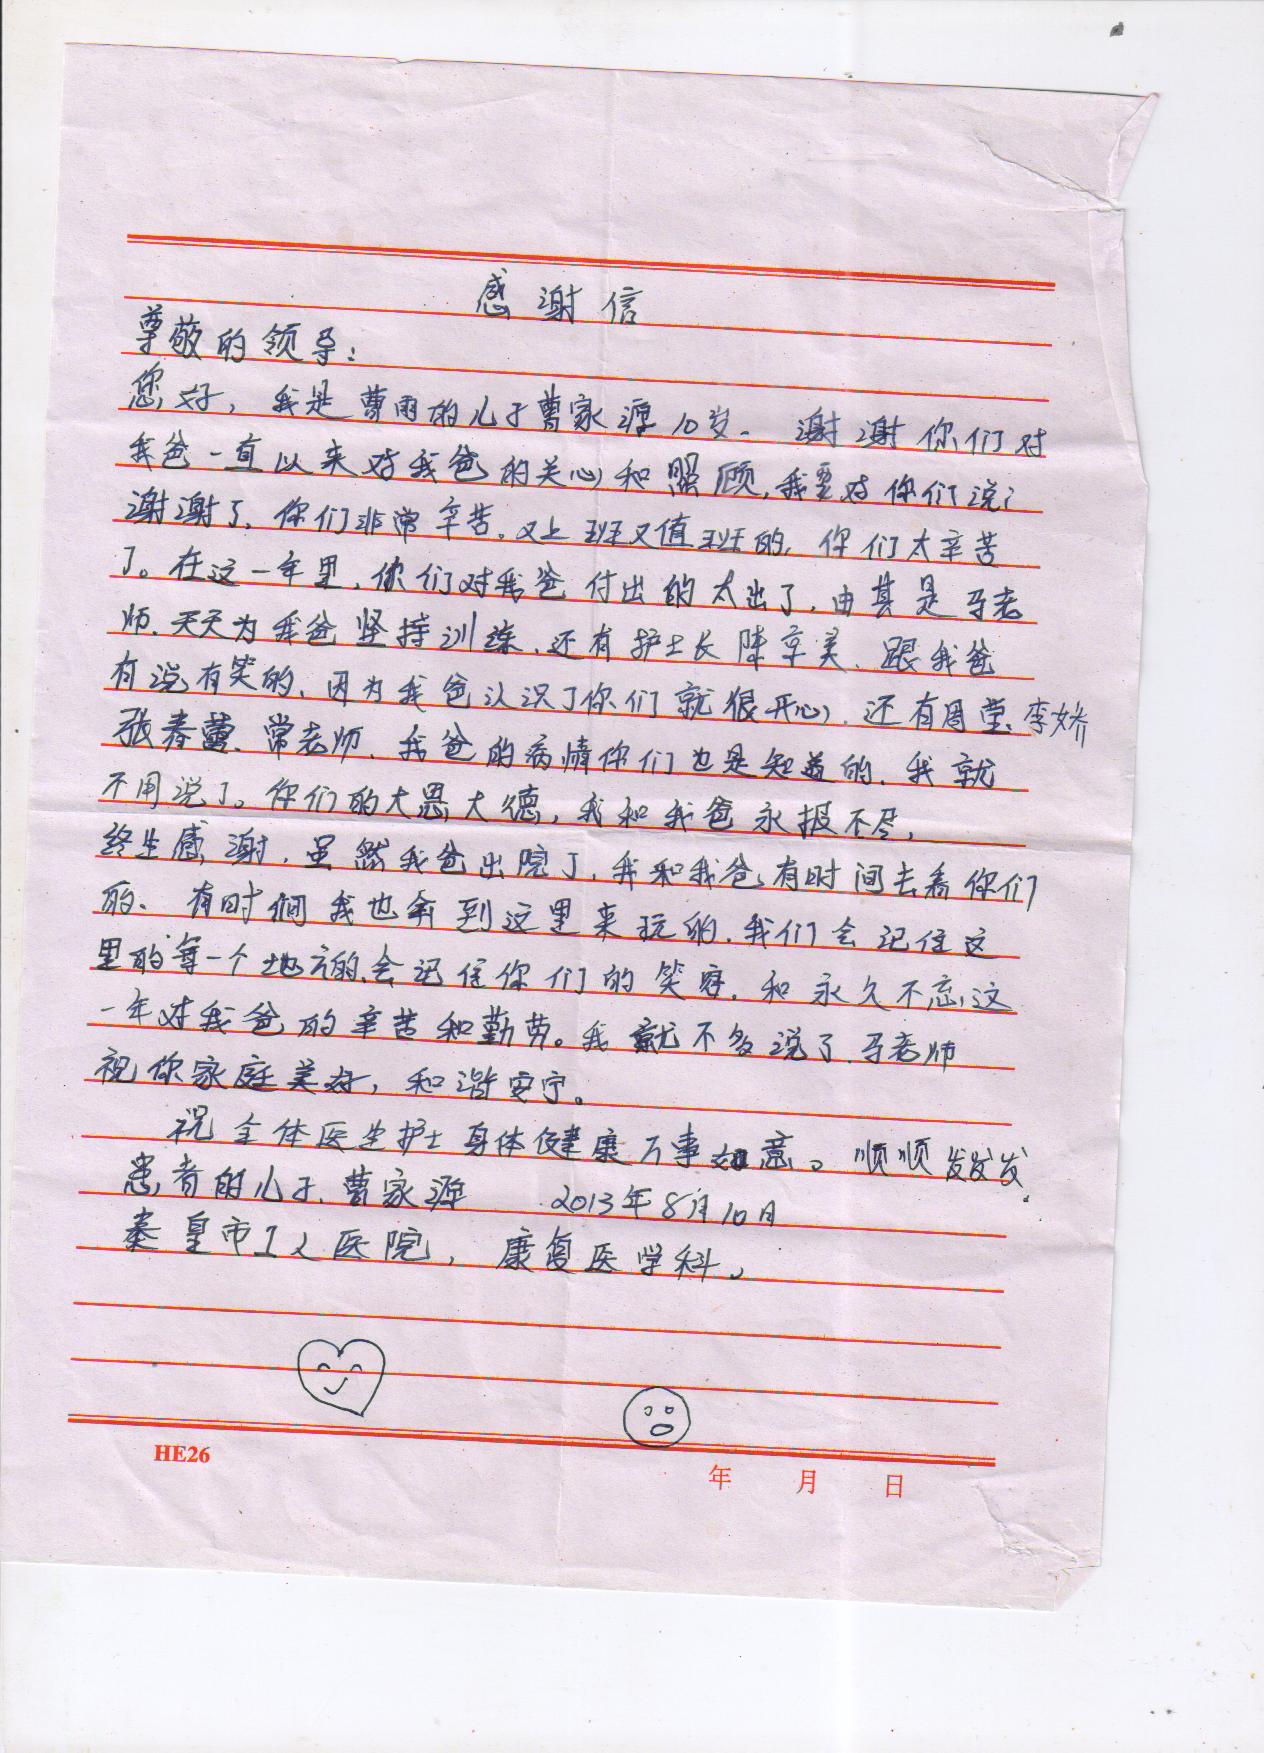 感谢信
尊敬的领导:
您好, 我是曹雨的儿子曹家源10岁。 谢谢你们对
我爸一直以来对我爸的关心和照顾,我要对你们说:
谢谢了, 你们非常辛苦。又上班又值班的, 你们太辛苦
了。在这一年里, 你们对我爸付出的太出了, 由其是马老
师、天天为我爸坚持训练、还有护士长陈 美、跟我爸
有说有笑的、因为我爸认识了你们就狠开心、还有周莹、李娇
张春蕾、常老师、我爸的病情你们也是知道的、我就
不用说了。你们的大恩大德, 我和我爸永报不尽,
终生感谢, 虽然我爸出院了, 我和我爸有时间去看你们
的、有时间我也会到这里来玩的、我们会记住这
里的每一个地方的、会记住你们的笑容, 和永久不忘这
一年对我爸的辛苦和勤劳。我就不多说了、马老师
祝你家庭美好, 和谐安宁。
祝全体医生护士身体健康万事如意。顺顺发发发
患者的儿子、曹家源 2013年8月10日
秦皇市工人医院, 康复医学科。
HE26
年 月 日